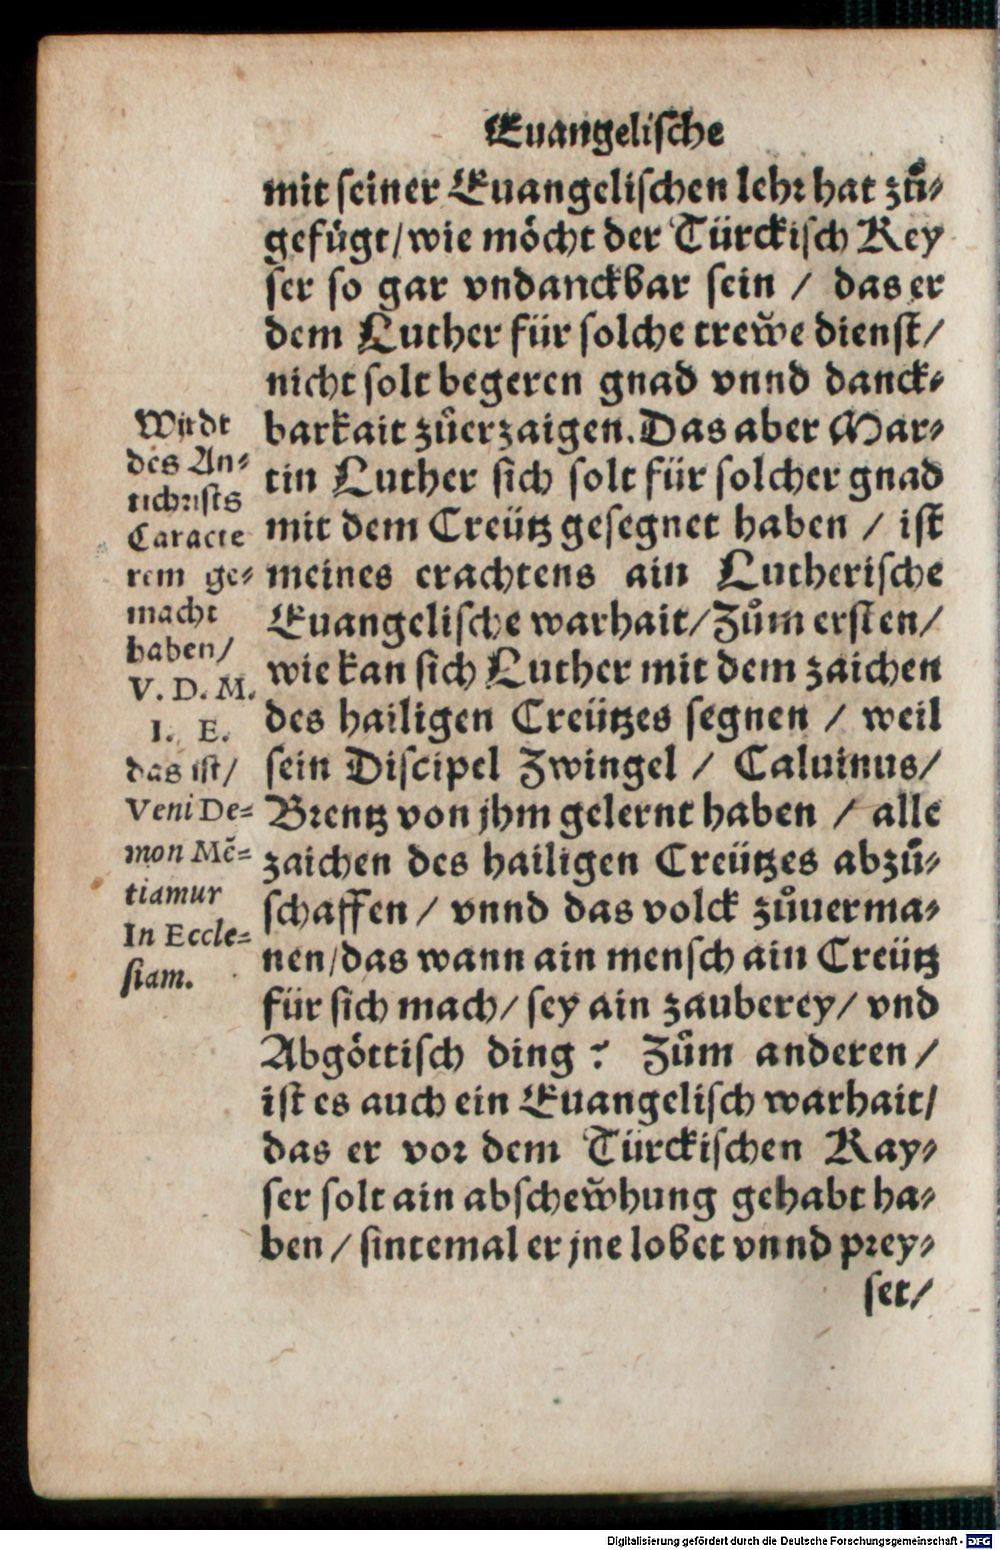 Euangelische
mit seiner Euangelischen lehr hat zů-
gefügt/wie möcht der Türckisch Key
ser so gar vndanckbar sein / das er
dem Luther für solche trew̆e dienst/
nicht solt begeren gnad vnnd danck-
barkait zůerzaigen. Das aber Mar-
tin Luther sich solt für solcher gnad
mit dem Creütz gesegnet haben / ist
meines erachtens ain Lutherische
Euangelische warhait/Zům ersten/
wie kan sich Luther mit dem zaichen
des hailigen Creützes segnen / weil
sein Discipel Zwingel / Caluinus/
Brentz von jhm gelernt haben / alle
zaichen des hailigen Creützes abzů-
schaffen / vnnd das volck zůuerma-
nen/das wann ain mensch ain Creütz
für sich mach/ sey ain zauberey/ vnd
Abgöttisch ding? Zům anderen/
ist es auch ein Euangelisch warhait/
das er vor dem Türckischen Kay-
ser solt ain abschew̆hung gehabt ha-
ben / sintemal er jne lobet vnnd prey-
set/
Wirdt
des An-
tichrists
Caracte
rem ge-
macht
haben/
V. D. M.
I. E.
das ist/
Veni De-
mon Mē-
tiamur
In Eccle-
siam.
Digitalisierung gefördert durch die Deutsche Forschungsgemeinschaft - DFG